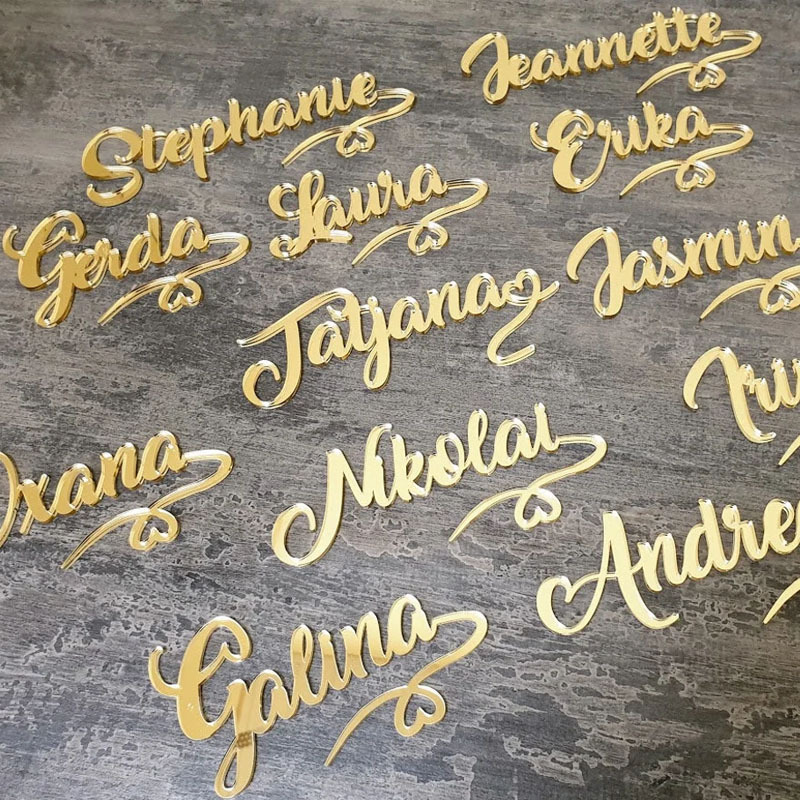 Jeannette
Stephanie
Erika
Laura
Gerda
Jasmin
Tatjana
Oxana
Nikolai
Andre
Galina